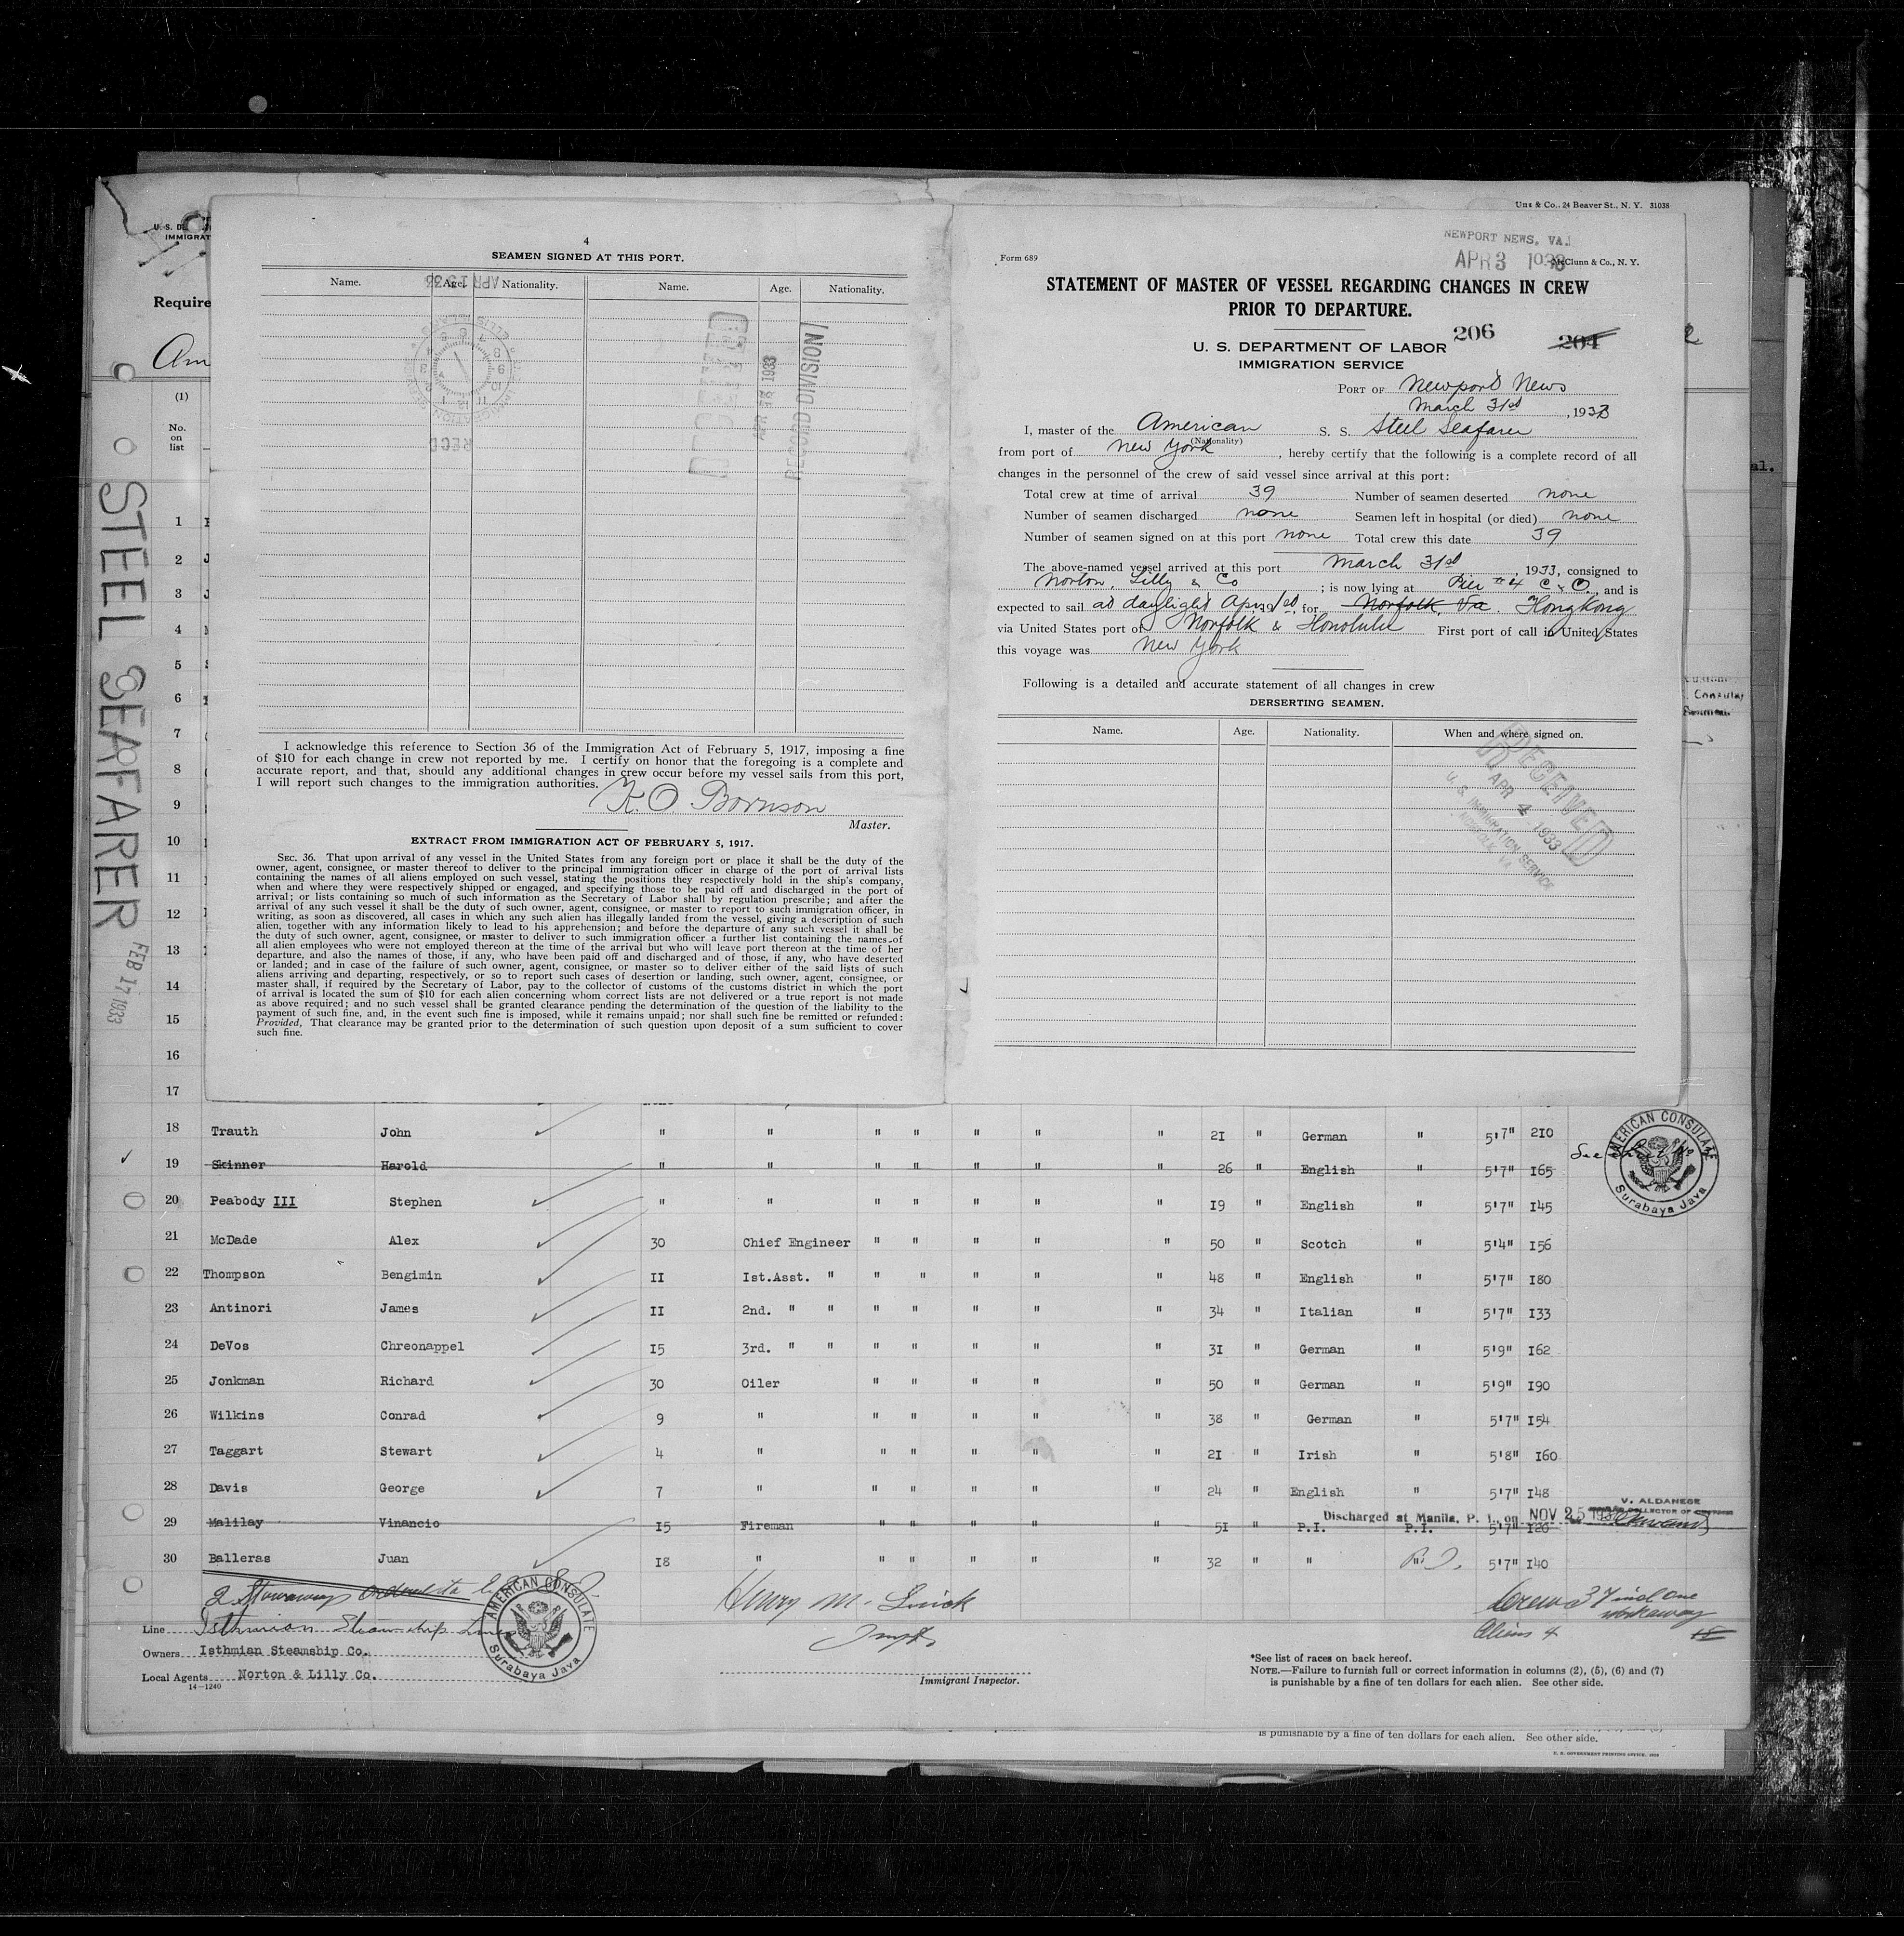 Une & Co., 24 Beaver St., N. Y. 31038
U. S. DE
IMMIGRAT
Require
Am
(1)
No.
on
list
STEEL SEAFARER
FEB 17 1933
4
SEAMEN SIGNED AT THIS PORT.
Name. Age. Nationality. Name. Age. Nationality.
APR 1933
REC'D
RECEIVED
APR 1933
RECORD DIVISION
I acknowledge this reference to Section 36 of the Immigration Act of February 5, 1917, imposing a fine
of $10 for each change in crew not reported by me. I certify on honor that the foregoing is a complete and
accurate report, and that, should any additional changes in crew occur before my vessel sails from this port,
I will report such changes to the immigration authorities.
K. O. Bornson
Master.
EXTRACT FROM IMMIGRATION ACT OF FEBRUARY 5, 1917.
SEC. 36. That upon arrival of any vessel in the United States from any foreign port or place it shall be the duty of the
owner, agent, consignee, or master thereof to deliver to the principal immigration officer in charge of the port of arrival lists
containing the names of all aliens employed on such vessel, stating the positions they respectively hold in the ship's company,
when and where they were respectively shipped or engaged, and specifying those to be paid off and discharged in the port of
arrival; or lists containing so much of such information as the Secretary of Labor shall by regulation prescribe; and after the
arrival of any such vessel it shall be the duty of such owner, agent, consignee, or master to report to such immigration officer, in
writing, as soon as discovered, all cases in which any such alien has illegally landed from the vessel, giving a description of such
alien, together with any information likely to lead to his apprehension; and before the departure of any such vessel it shall be
the duty of such owner, agent, consignee, or master to deliver to such immigration officer a further list containing the names of
all alien employees who were not employed thereon at the time of the arrival but who will leave port thereon at the time of her
departure, and also the names of those, if any, who have been paid off and discharged and of those, if any, who have deserted
or landed; and in case of the failure of such owner, agent, consignee, or master so to deliver either of the said lists of such
aliens arriving and departing, respectively, or so to report such cases of desertion or landing, such owner, agent, consignee, or
master shall, if required by the Secretary of Labor, pay to the collector of customs of the customs district in which the port
of arrival is located the sum of $10 for each alien concerning whom correct lists are not delivered or a true report is not made
as above required; and no such vessel shall be granted clearance pending the determination of the question of the liability to the
payment of such fine, and, in the event such fine is imposed, while it remains unpaid; nor shall such fine be remitted or refunded:
Provided, That clearance may be granted prior to the determination of such question upon deposit of a sum sufficient to cover
such fine.
NEWPORT NEWS, VA.
APR 3 1933
Form 689 McClunn & Co., N. Y.
STATEMENT OF MASTER OF VESSEL REGARDING CHANGES IN CREW
PRIOR TO DEPARTURE.
206 204
U. S. DEPARTMENT OF LABOR
IMMIGRATION SERVICE
PORT OF Newport News
March 31st, 1933
I, master of the American S. S. Steel Seafarer
(Nationality)
from port of New York, hereby certify that the following is a complete record of all
changes in the personnel of the crew of said vessel since arrival at this port:
Total crew at time of arrival 39 Number of seamen deserted none
Number of seamen discharged none Seamen left in hospital (or died) none
Number of seamen signed on at this port none Total crew this date 39
The above-named vessel arrived at this port March 31st, 1933, consigned to
Norton, Lilly & Co; is now lying at Pier #4 C & O, and is
expected to sail at daylight Apr. 1st, for Norfolk, Va. HongKong
via United States port of Norfolk & Honolulu First port of call in United States
this voyage was New York
Following is a detailed and accurate statement of all changes in crew
DERSERTING SEAMEN.
Name. Age. Nationality. When and where signed on.
RECEIVED
APR 4 1933
U. S. IMMIGRATION SERVICE
NORFOLK, VA.
1
2
3
4
5
6
7
8
9
10
11
12
13
14
15
16
17
18 Trauth John " " " " " " " 21 " German " 5'7" 210
19 Skinner Harold 26 " English " 5'7" 165
20 Peabody III Stephen " " " " " " " 19 " English " 5'7" 145
21 McDade Alex 30 Chief Engineer " " " " " 50 " Scotch " 5'4" 156
22 Thompson Bengimin II Ist.Asst. " " " " " " 48 " English " 5'7" 180
23 Antinori James II 2nd. " " " " " " " 34 " Italian " 5'7" 133
24 DeVos Chreonappel 15 3rd. " " " " " " " 31 " German " 5'9" 162
25 Jonkman Richard 30 Oiler " " " " " 50 " German " 5'9" 190
26 Wilkins Conrad 9 " " " " " " 38 " German " 5'7" 154
27 Taggart Stewart 4 " " " " " " 21 " Irish " 5'8" 160
28 Davis George 7 " " " " " " 24 " English " 5'7" 148
Discharged at Manila, P. I., on NOV 25 193
V. ALDANESE
COLLECTOR OF CUSTOMS
29 Malilay Vinancio 15 Fireman " " " " " 51 " P.I. P.I. 5'7" 126
30 Balleras Juan 18 " " " " " " 32 " " P.I. 5'7" 140
AMERICAN CONSULATE
Surabaya Java
2 Stowaways
AMERICAN CONSULATE
Surabaya Java
Line Isthmian Steamship Lines
Owners Isthmian Steamship Co.
Local Agents Norton & Lilly Co.
14-1240
Henry M.
Immigrant Inspector.
Crew 37 incl one
workaway
Aliens 4
*See list of races on back hereof.
NOTE.—Failure to furnish full or correct information in columns (2), (5), (6) and (7)
is punishable by a fine of ten dollars for each alien. See other side.
is punishable by a fine of ten dollars for each alien. See other side.
U. S. GOVERNMENT PRINTING OFFICE